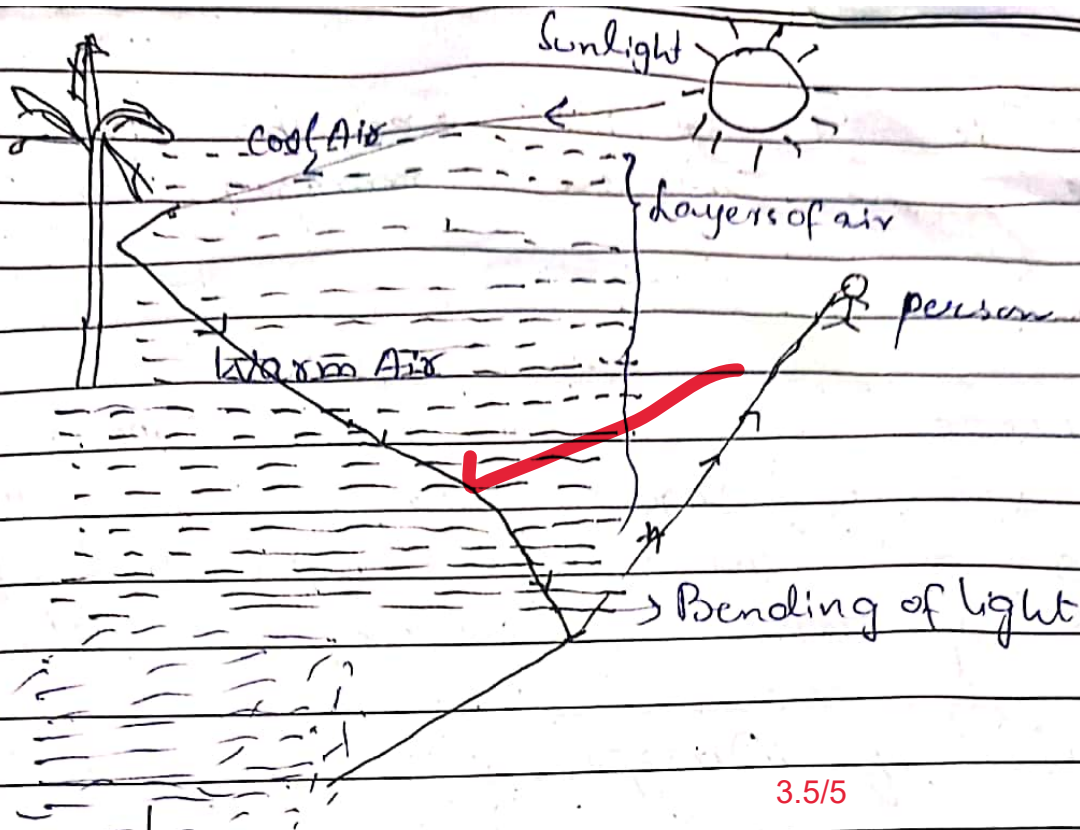 Sunlight
Cool Air
Layers of air
person
Warm Air
Bending of light
3.5/5